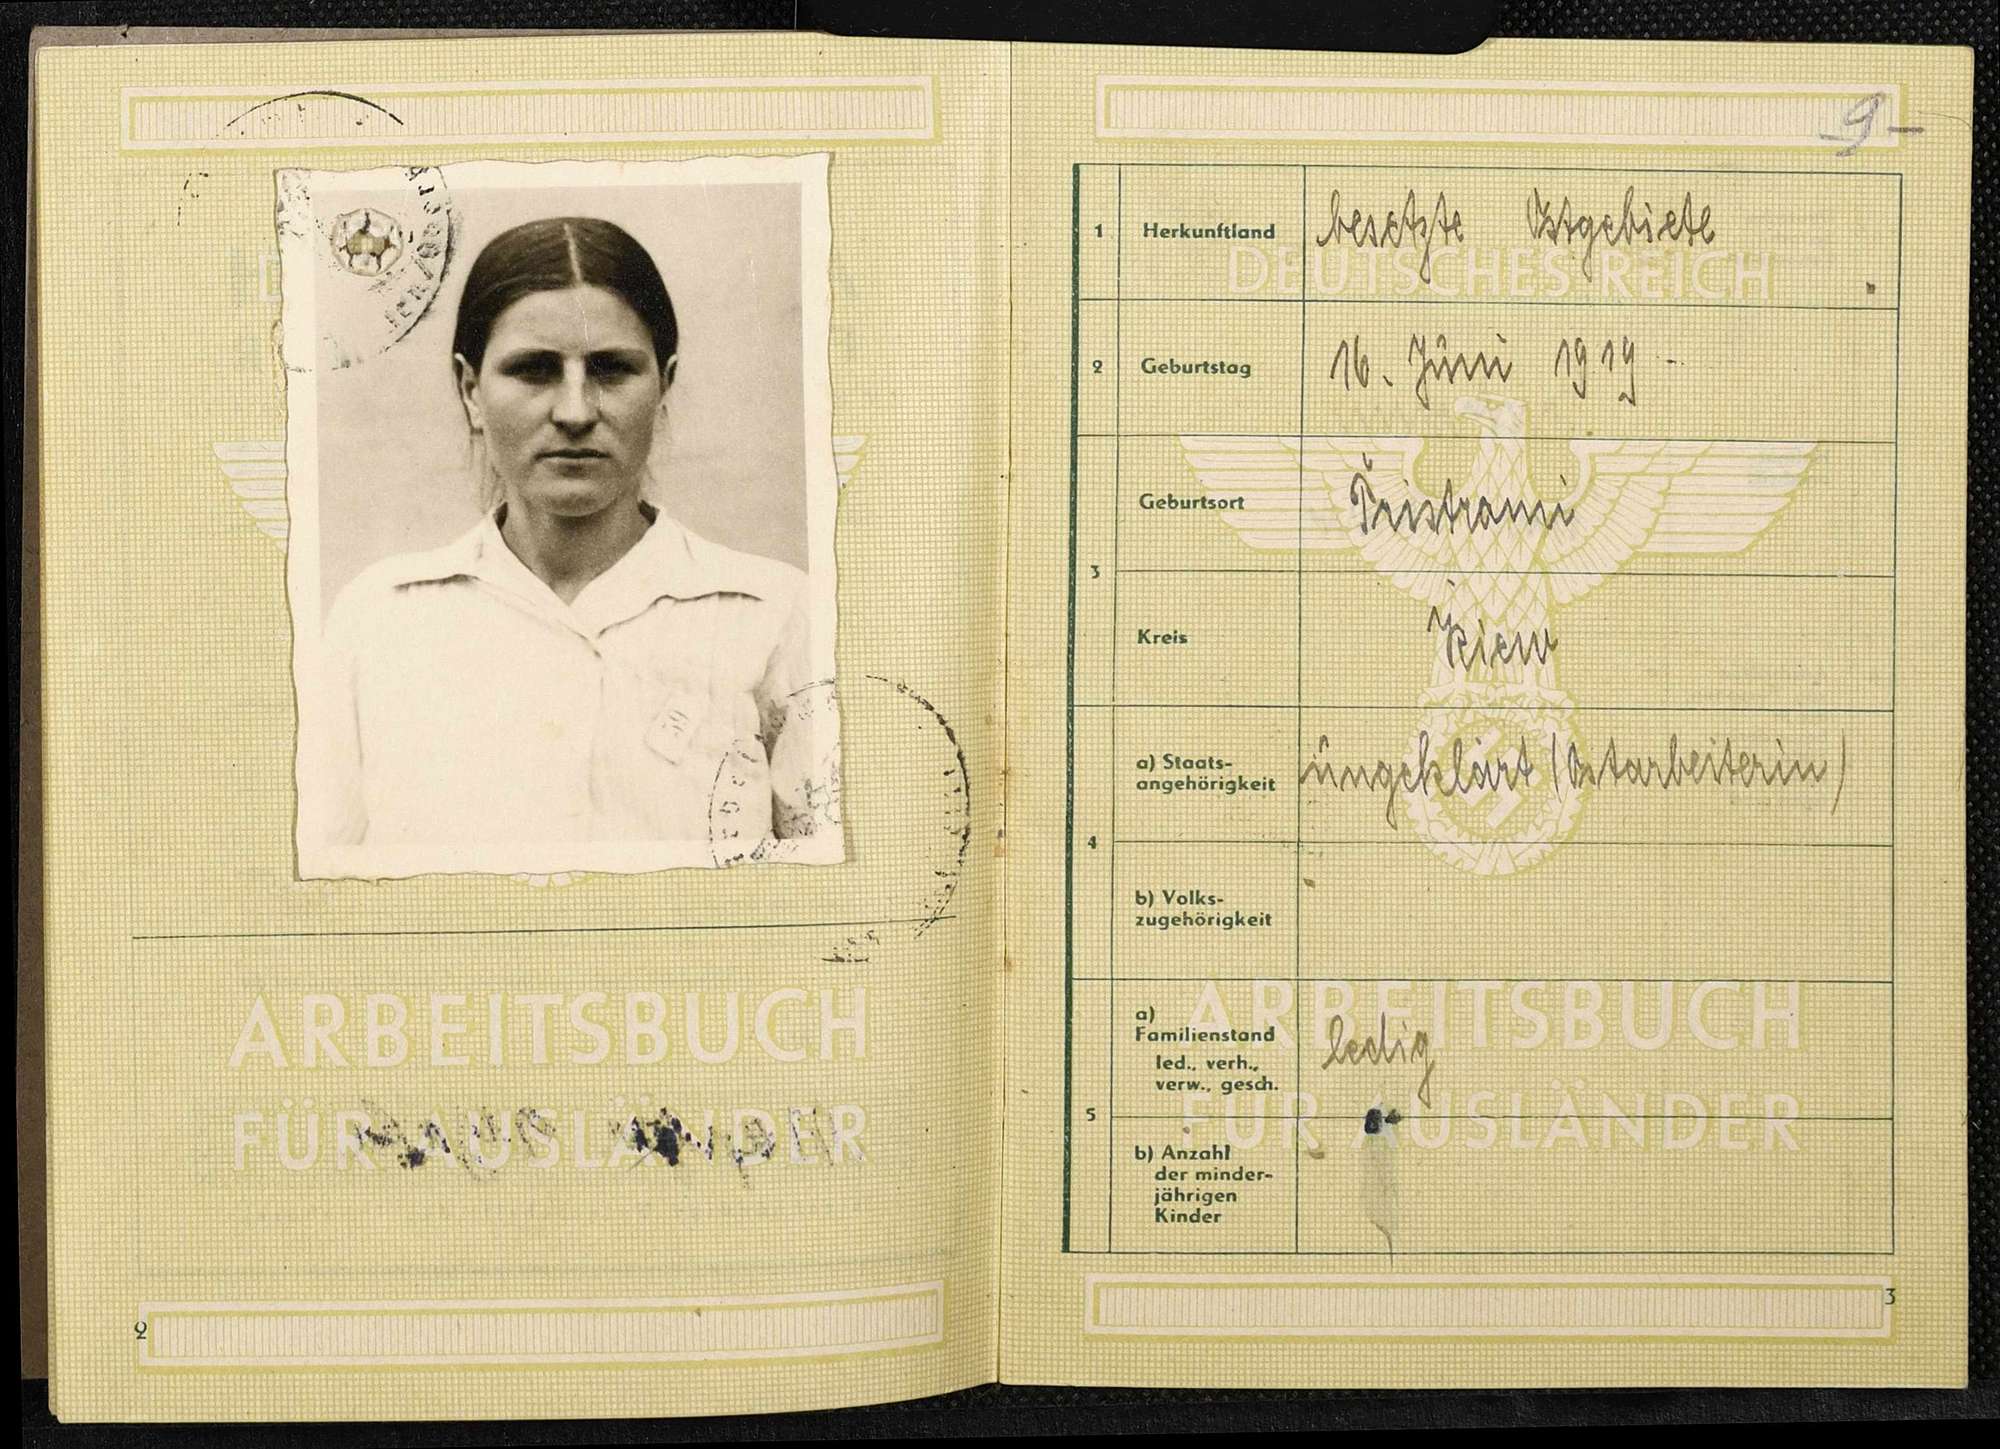 ARBEITSBUCH
FÜR AUSLÄNDER
2
9
DEUTSCHES REICH
1 Herkunftland besetzte Ostgebiete
2 Geburtstag 16. Juni 1919
3 Geburtsort Tristrami
Kreis Kiew
4 a) Staats-
angehörigkeit ungeklärt (Ostarbeiterin)
b) Volks-
zugehörigkeit
ARBEITSBUCH
FÜR AUSLÄNDER
5 a)
Familienstand ledig
led., verh.,
verw., gesch.
b) Anzahl
der minder-
jährigen
Kinder
3